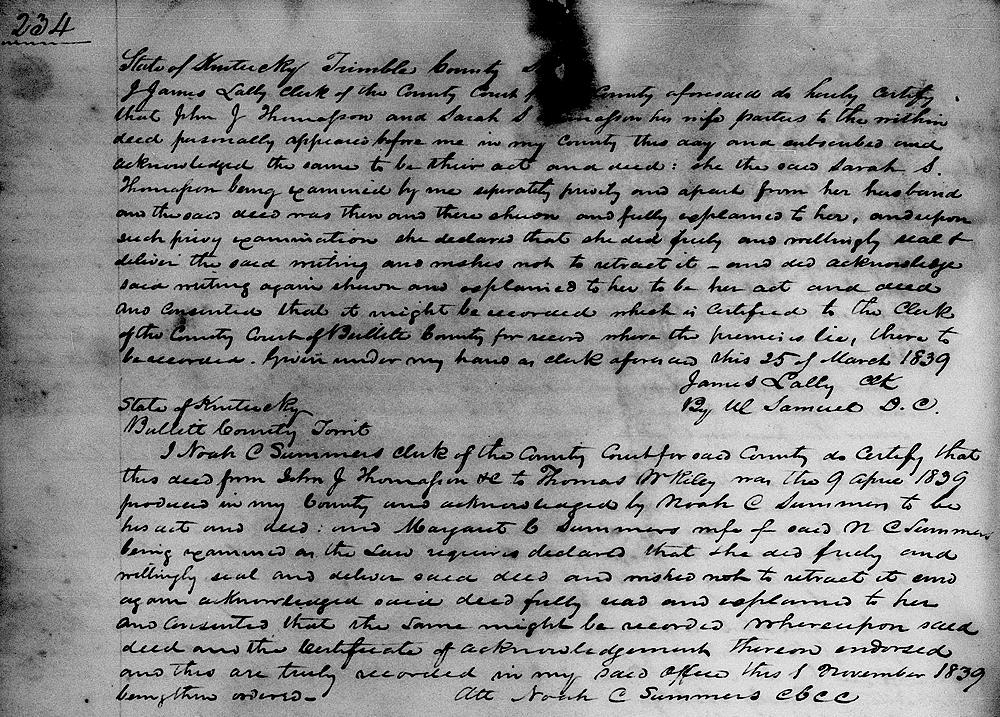 234
State of Kentucky Trimble County
I James Lally clerk of the County Court County aforesaid do hereby certify
that John J Thomasson and Sarah S his wife parties to the within
deed personally appeared before me in my County this day and subscribed and
acknowledged the same to be their act and deed: she the said Sarah S.
Thomasson being examined by me seperately privily and apart from her husband
and the said deed was then and there shewn and fully explained to her, and upon
such privy examination she declared that she did freely and willingly seal &
deliver the said writing and wishes not to retract it - and did acknowledge
said writing again shewn and explained to her to be her act and deed
and consented that it might be recorded which is certified to the Clerk
of the County Court of Bullitt County for record where the premises lie, there to
be recorded. Given under my hand as clerk aforesaid this 25 of March 1839
James Lally Clk
By W Samuel D. C.
State of Kentucky
Bullitt County Towit
I Noah C Summers clerk of the County Court for said County do Certify that
this deed from John J Thomasson &C to Thomas W Riley was the 9 April 1839
produced in my County and acknowledged by Noah C Summers to be
his act and deed: and Margaret C Summers wife of said N C Summers
being examined as the Law requires declared that she did freely and
willingly seal and deliver said deed and wished not to retract it and
again acknowledged said deed fully read and explained to her
and consented that the same might be recorded Whereupon said
deed and the Certificate of acknowledgement thereon endorsed
and this are truly recorded in my said office this 1 November 1839
being then ordered-
Att Noah C Summers CBCC